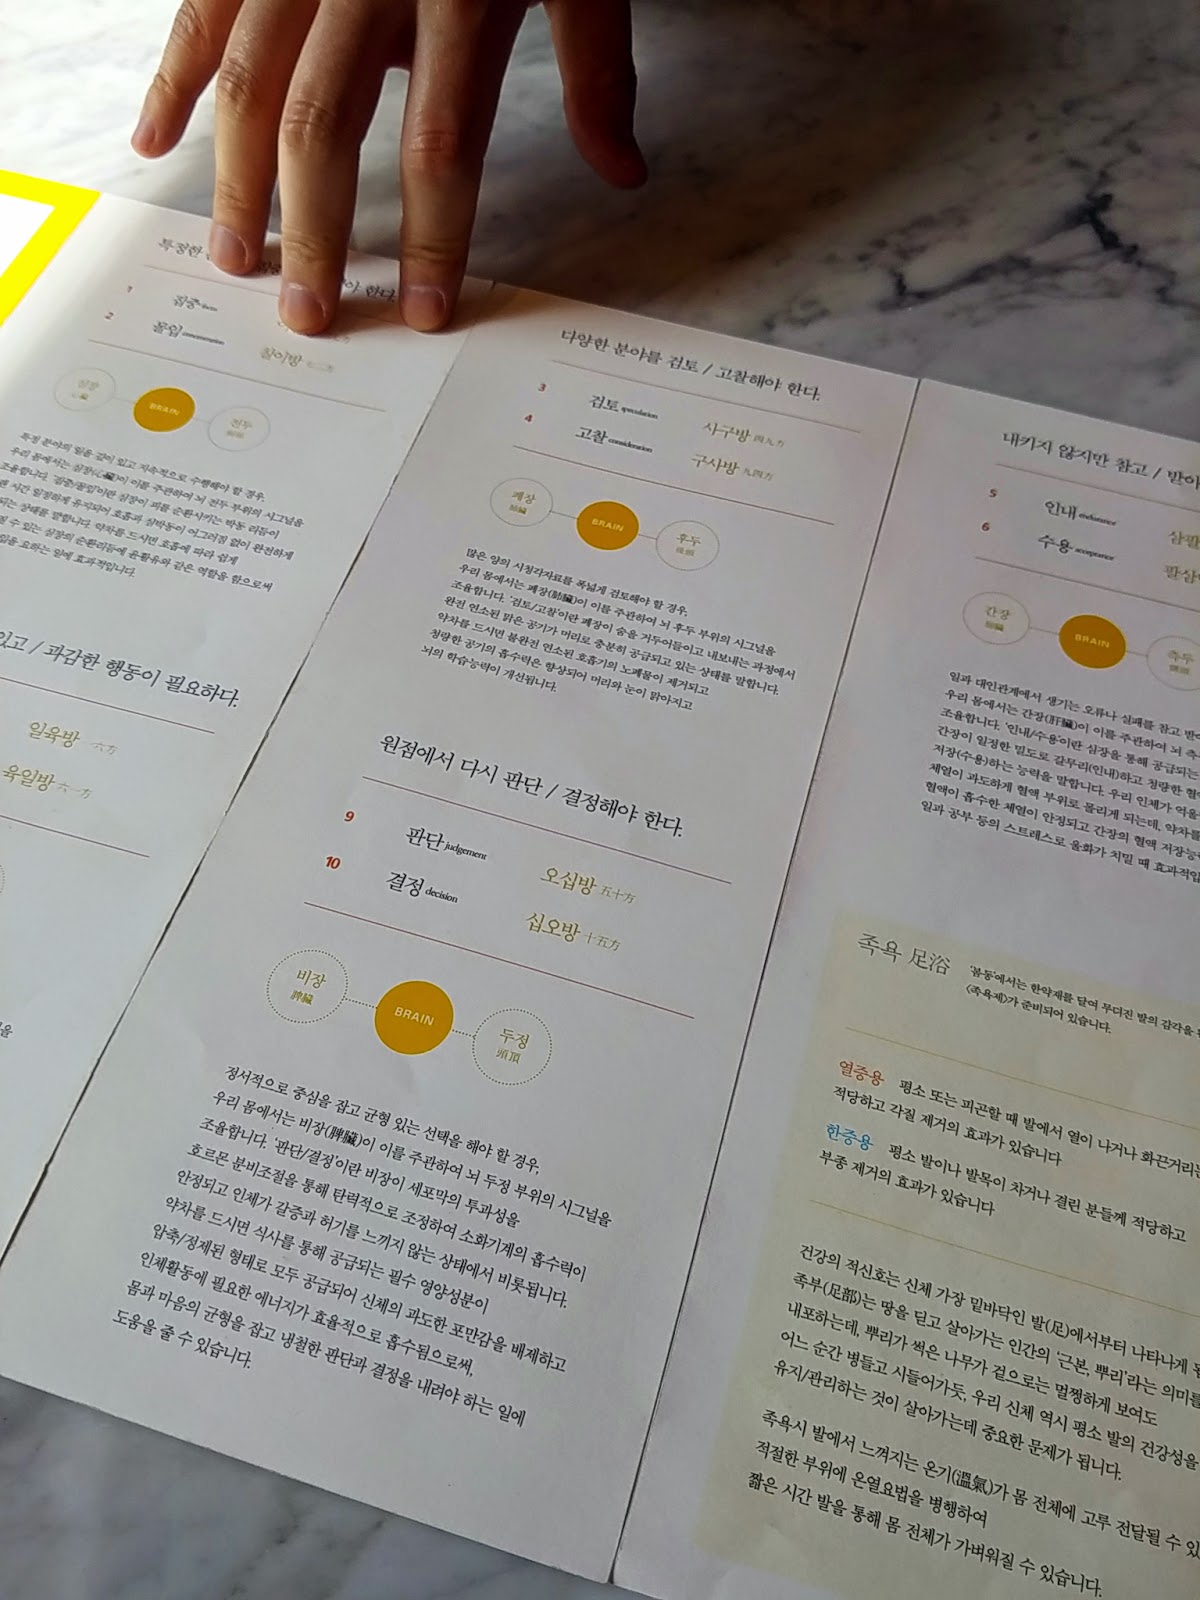 특정한
한다.
1 집중 focus
2 몰입 concentration 칠이방 七二方
심장 心臟
BRAIN
전두 前頭
특정 분야의 일을 깊이 있고 지속적으로 수행해야 할 경우,
우리 몸에서는 심장(心臟)이 이를 주관하여 뇌 전두 부위의 시그널을
조율합니다. '집중/몰입'이란 심장이 피를 순환시키는 박동 리듬이
시간 일정하게 유지되어 호흡과 심박동이 어그러짐 없이 완전하게
되는 상태를 말합니다. 약차를 드시면 호흡에 따라 쉽게
수 있는 심장의 순환리듬에 윤활유와 같은 역할을 함으로써
요하는 일에 효과적입니다.
있고 / 과감한 행동이 필요하다.
일육방 一六方
육일방 六一方
다양한 분야를 검토 / 고찰해야 한다.
3 검토 speculation 사구방 四九方
4 고찰 consideration 구사방 九四方
폐장 肺臟
BRAIN
후두 後頭
많은 양의 시청각자료를 폭넓게 검토해야 할 경우,
우리 몸에서는 폐장(肺臟)이 이를 주관하여 뇌 후두 부위의 시그널을
조율합니다. '검토/고찰'이란 폐장이 숨을 거두어들이고 내보내는 과정에서
완전 연소된 맑은 공기가 머리로 충분히 공급되고 있는 상태를 말합니다.
약차를 드시면 불완전 연소된 호흡기의 노폐물이 제거되고
청량한 공기의 흡수력은 향상되어 머리와 눈이 맑아지고
뇌의 학습능력이 개선됩니다.
원점에서 다시 판단 / 결정해야 한다.
9 판단 judgement 오십방 五十方
10 결정 decision 십오방 十五方
비장 脾臟
BRAIN
두정 頭頂
정서적으로 중심을 잡고 균형 있는 선택을 해야 할 경우,
우리 몸에서는 비장(脾臟)이 이를 주관하여 뇌 두정 부위의 시그널을
조율합니다. '판단/결정'이란 비장이 세포막의 투과성을
호르몬 분비조절을 통해 탄력적으로 조정하여 소화기계의 흡수력이
안정되고 인체가 갈증과 허기를 느끼지 않는 상태에서 비롯됩니다.
약차를 드시면 식사를 통해 공급되는 필수 영양성분이
압축/정제된 형태로 모두 공급되어 신체의 과도한 포만감을 배제하고
인체활동에 필요한 에너지가 효율적으로 흡수됨으로써,
몸과 마음의 균형을 잡고 냉철한 판단과 결정을 내려야 하는 일에
도움을 줄 수 있습니다.
내키지 않지만 참고 / 받아
5 인내 endurance 삼팔
6 수용 acceptance 팔삼
간장 肝臟
BRAIN
측두
일과 대인관계에서 생기는 오류나 실패를 참고 받아
우리 몸에서는 간장(肝臟)이 이를 주관하여 뇌 측
조율합니다. '인내/수용'이란 심장을 통해 공급되는
간장이 일정한 밀도로 갈무리(인내)하고 청량한 혈
저장(수용)하는 능력을 말합니다. 우리 인체가 억울
체열이 과도하게 혈액 부위로 몰리게 되는데, 약차를
혈액이 흡수한 체열이 안정되고 간장의 혈액 저장능
일과 공부 등의 스트레스로 울화가 치밀 때 효과적입
족욕 足浴
'봄동'에서는 한약재를 달여 무뎌진 발의 감각을
(족욕제)가 준비되어 있습니다.
열증용 평소 또는 피곤할 때 발에서 열이 나거나 화끈거리는
적당하고 각질 제거의 효과가 있습니다
한증용 평소 발이나 발목이 차거나 결린 분들께 적당하고
부종 제거의 효과가 있습니다
건강의 적신호는 신체 가장 밑바닥인 발(足)에서부터 나타나게
족부(足部)는 땅을 딛고 살아가는 인간의 '근본, 뿌리'라는 의미를
내포하는데, 뿌리가 썩은 나무가 겉으로는 멀쩡하게 보여도
어느 순간 병들고 시들어가듯, 우리 신체 역시 평소 발의 건강성을
유지/관리하는 것이 살아가는데 중요한 문제가 됩니다.
족욕시 발에서 느껴지는 온기(溫氣)가 몸 전체에 고루 전달될 수 있
적절한 부위에 온열요법을 병행하여
짧은 시간 발을 통해 몸 전체가 가벼워질 수 있습니다.